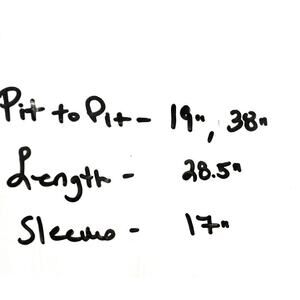 Pit to Pit - 19", 38"
Length - 28.5"
Sleeve - 17"